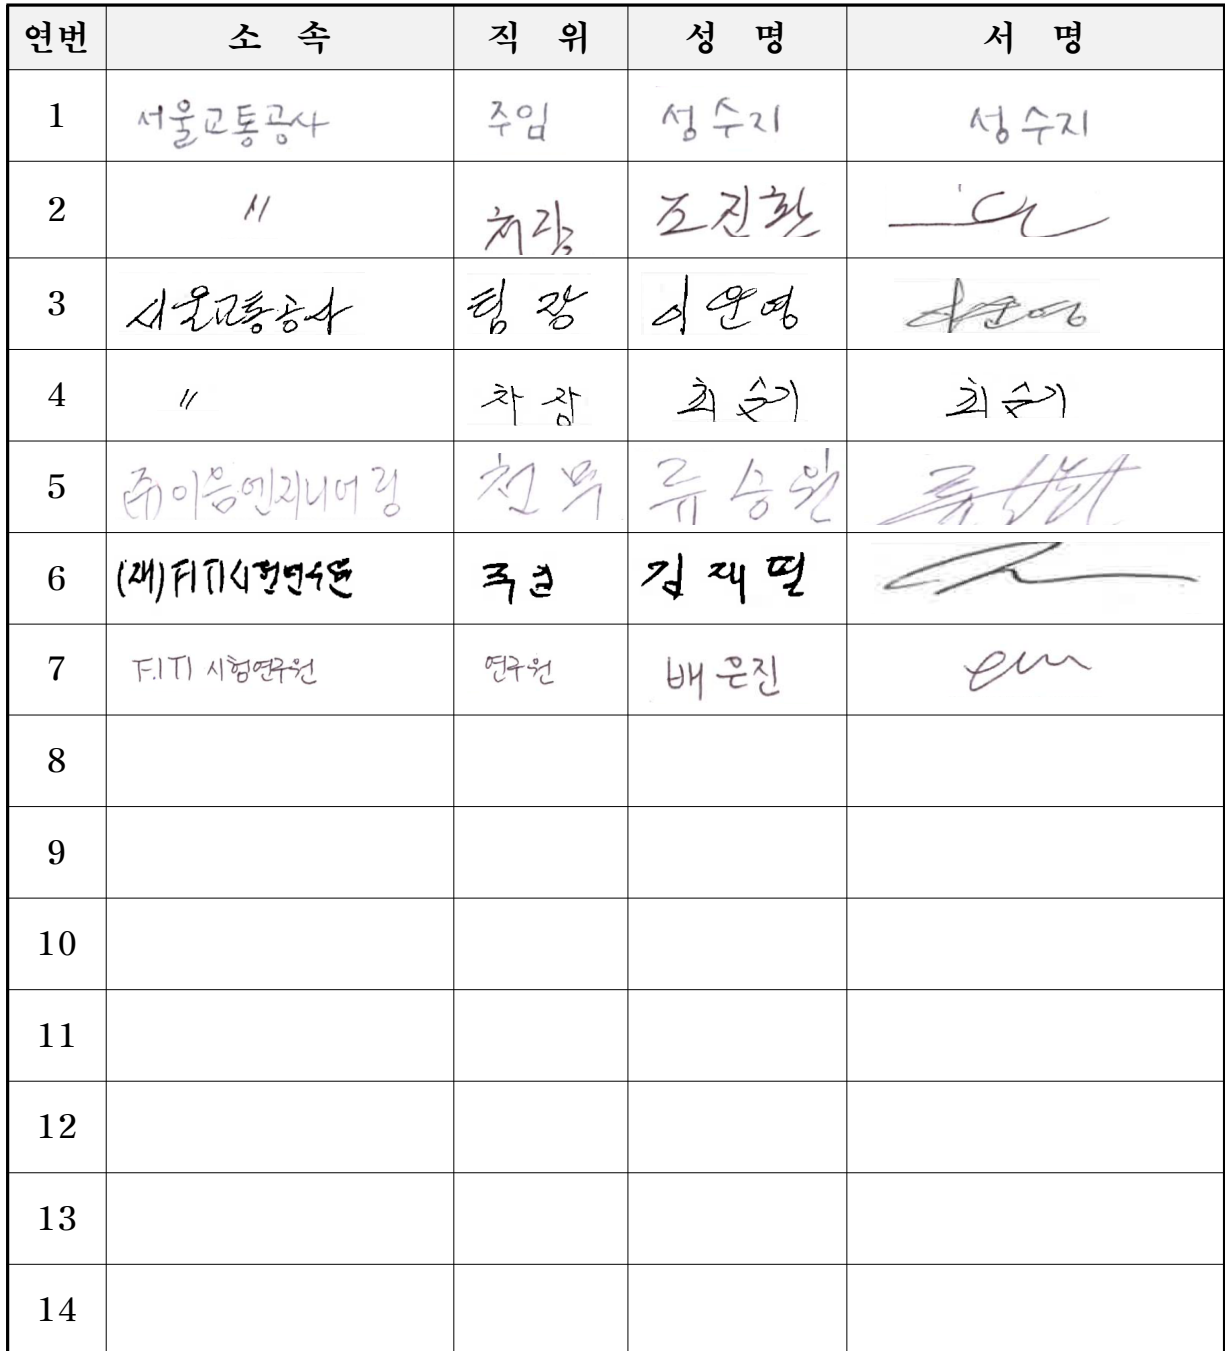 연번 소 속 직 위 성 명 서 명
1 서울교통공사 주임 성수지 성수지
2 〃 처장 조진환
3 서울교통공사 팀장 이운영 이운영
4 〃 차장 최슬기 최슬기
5 (주)이음엔지니어링 전무 류승원
6 (재)FITI시험연구원 주권 김재필
7 FITI 시험연구원 연구원 배은진
8
9
10
11
12
13
14